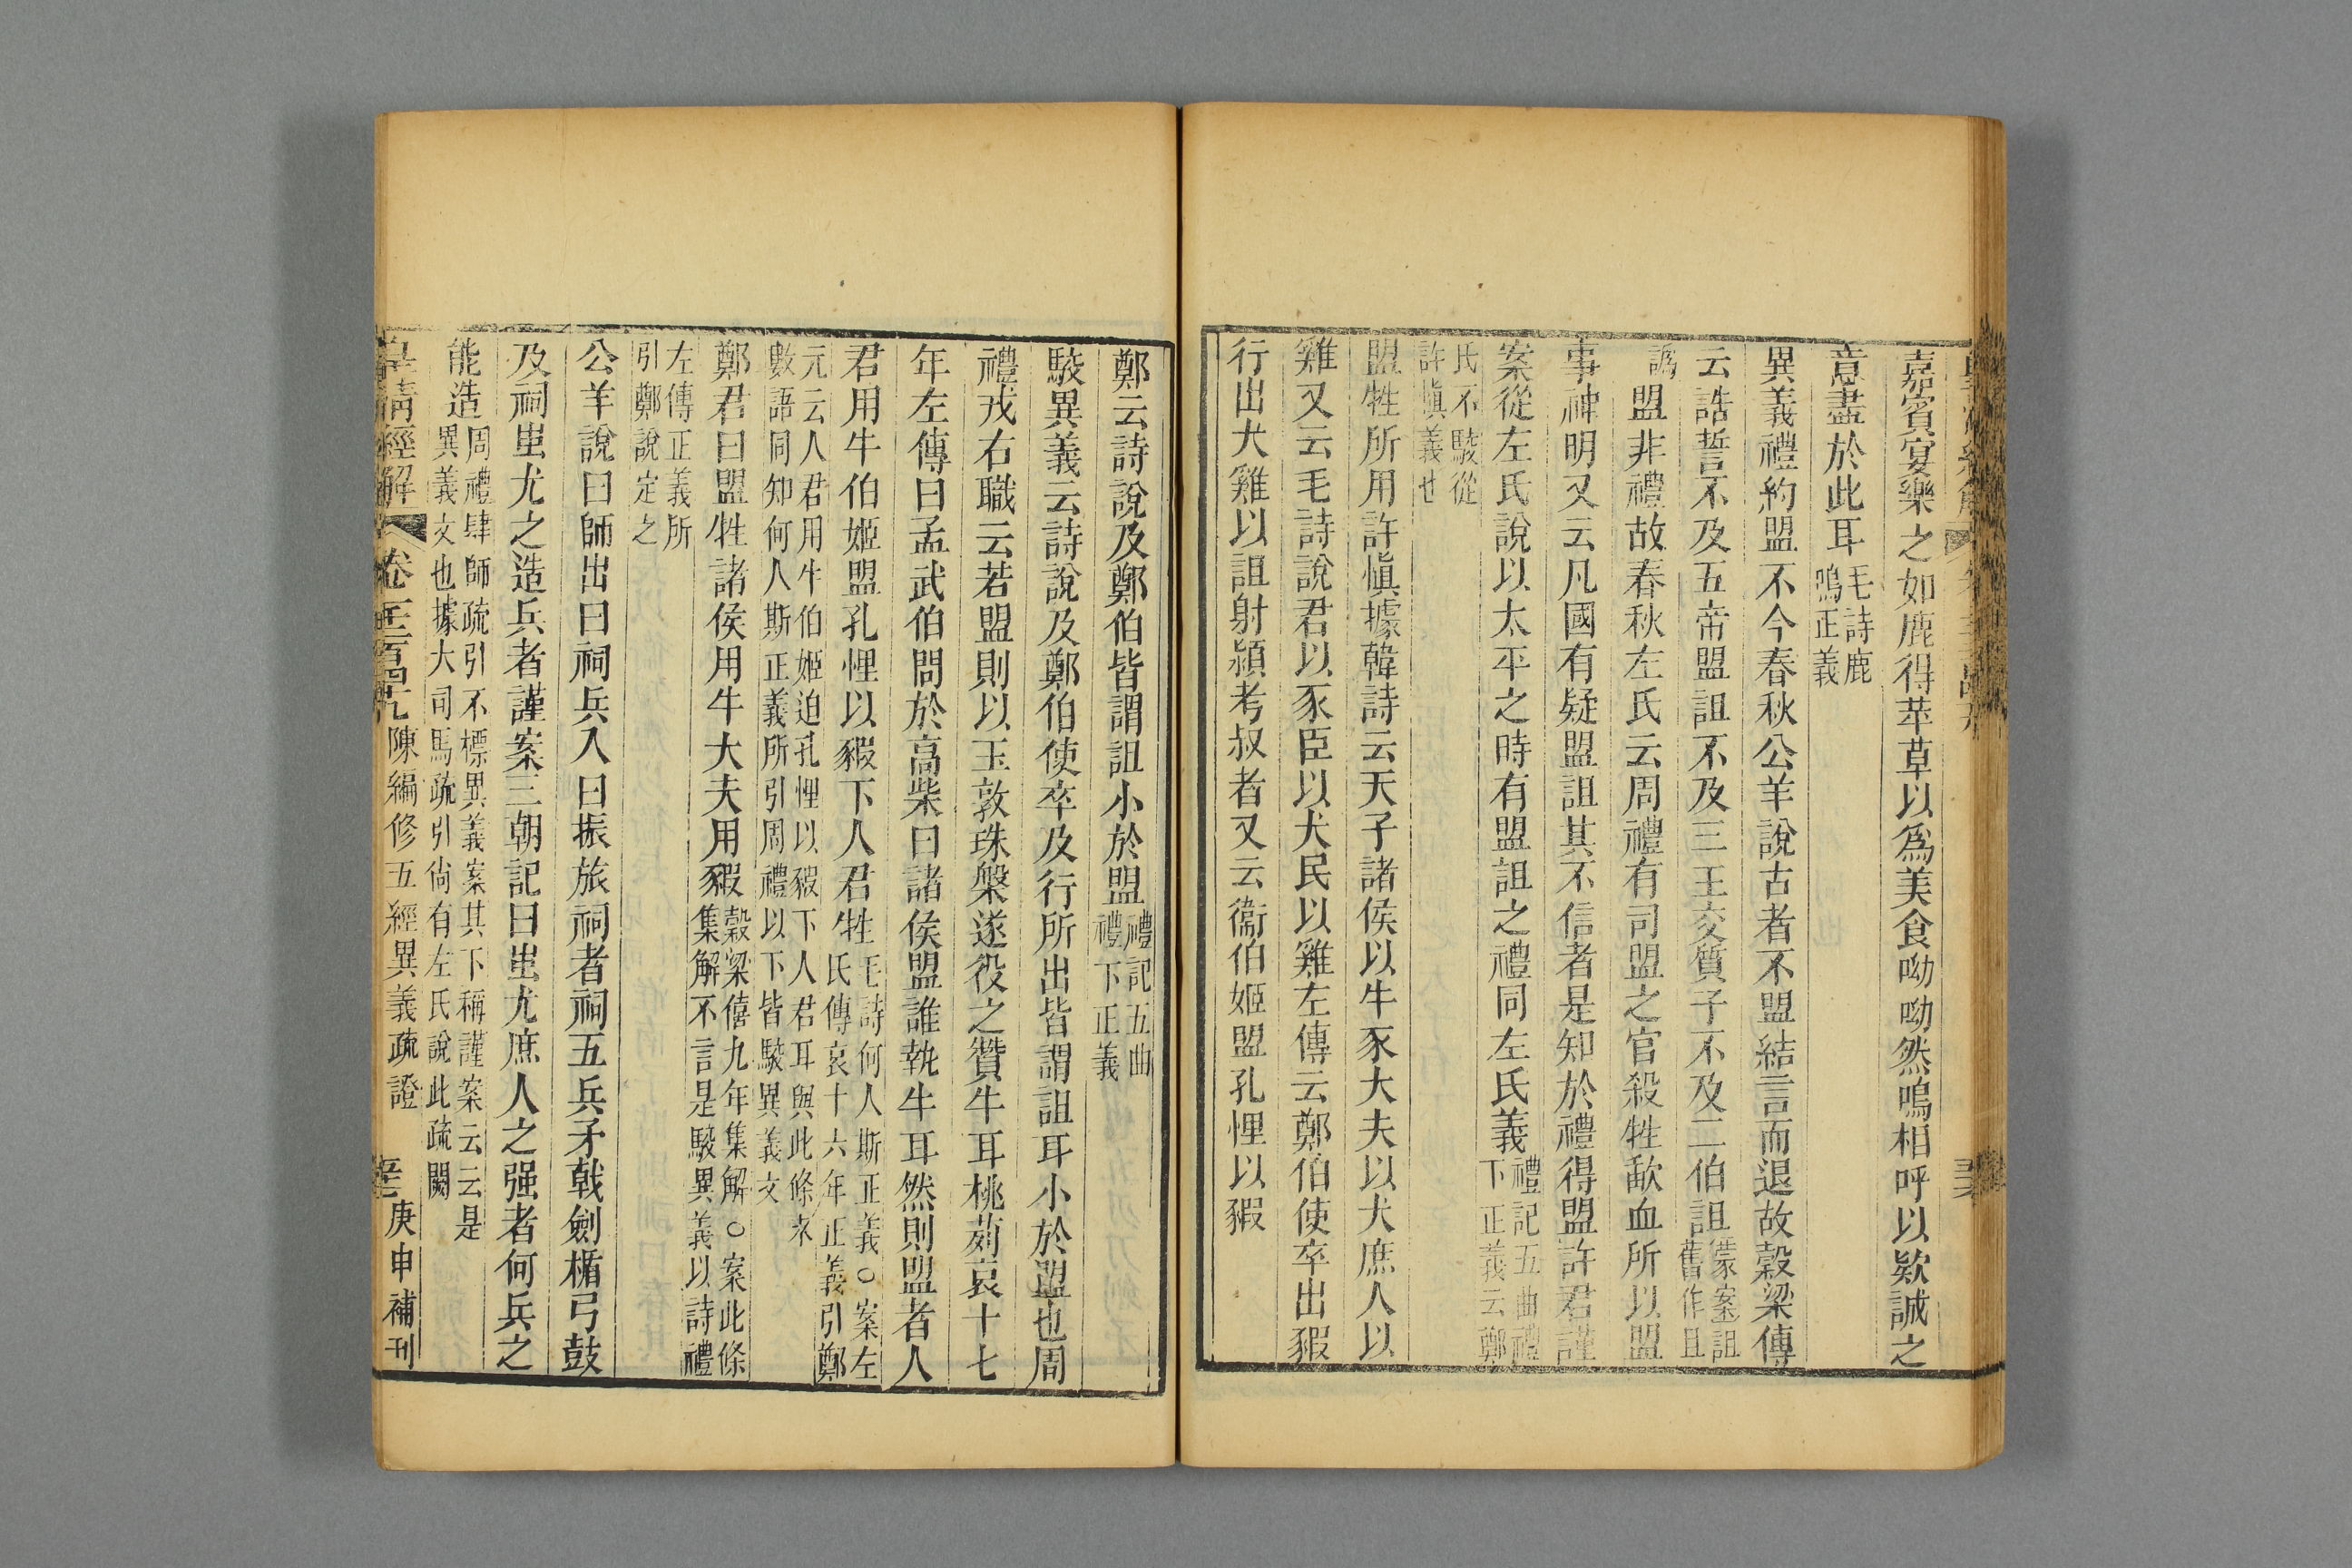 嘉賓宴樂之如鹿得苹草以爲美食呦呦然鳴相呼以款誠之
意盡於此耳毛詩鹿鳴正義
異義禮約盟不今春秋公羊說古者不盟結言而退故穀梁傳
云誥誓不及五帝盟詛不及三王交質子不及二伯詛蒙案詛舊作且
譌盟非禮故春秋左氏云周禮有司盟之官殺牲歃血所以盟
事神明又云凡國有疑盟詛其不信者是知於禮得盟許君謹
案從左氏說以太平之時有盟詛之禮同左氏義禮記五曲禮下正義云鄭
氏不駮從許愼義也
盟牲所用許愼據韓詩云天子諸侯以牛豕大夫以犬庶人以
雞又云毛詩說君以豕臣以犬民以雞左傳云鄭伯使卒出豭
行出犬雞以詛射潁考叔者又云衞伯姬盟孔悝以豭
鄭云詩說及鄭伯皆謂詛小於盟禮記五曲禮下正義
駮異義云詩說及鄭伯使卒及行所出皆謂詛耳小於盟也周
禮戎右職云若盟則以玉敦珠槃遂役之贊牛耳桃茢哀十七
年左傳曰孟武伯問於高柴曰諸侯盟誰執牛耳然則盟者人
君用牛伯姬盟孔悝以豭下人君牲毛詩何人斯正義○案左氏傳哀十六年正義引鄭
元云人君用牛伯姬迫孔悝以豭下人君耳與此條末數語同知何人斯正義所引周禮以下皆駮異義文
鄭君曰盟牲諸侯用牛大夫用豭穀梁僖九年集解○案此條集解不言是駮異義以詩禮
左傳正義所引鄭說定之
公羊說曰師出曰祠兵入曰振旅祠者祠五兵矛戟劍楯弓鼓
及祠蚩尤之造兵者謹案三朝記曰蚩尤庶人之强者何兵之
能造周禮肆師疏引不標異義案其下稱謹案云云是異義文也據大司馬疏引尙有左氏說此疏闕
皇清經解 卷一千二百四十九 陳編修五經異義疏證 庚申補刊